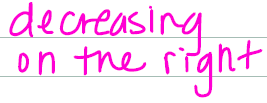 decreasing
on the right